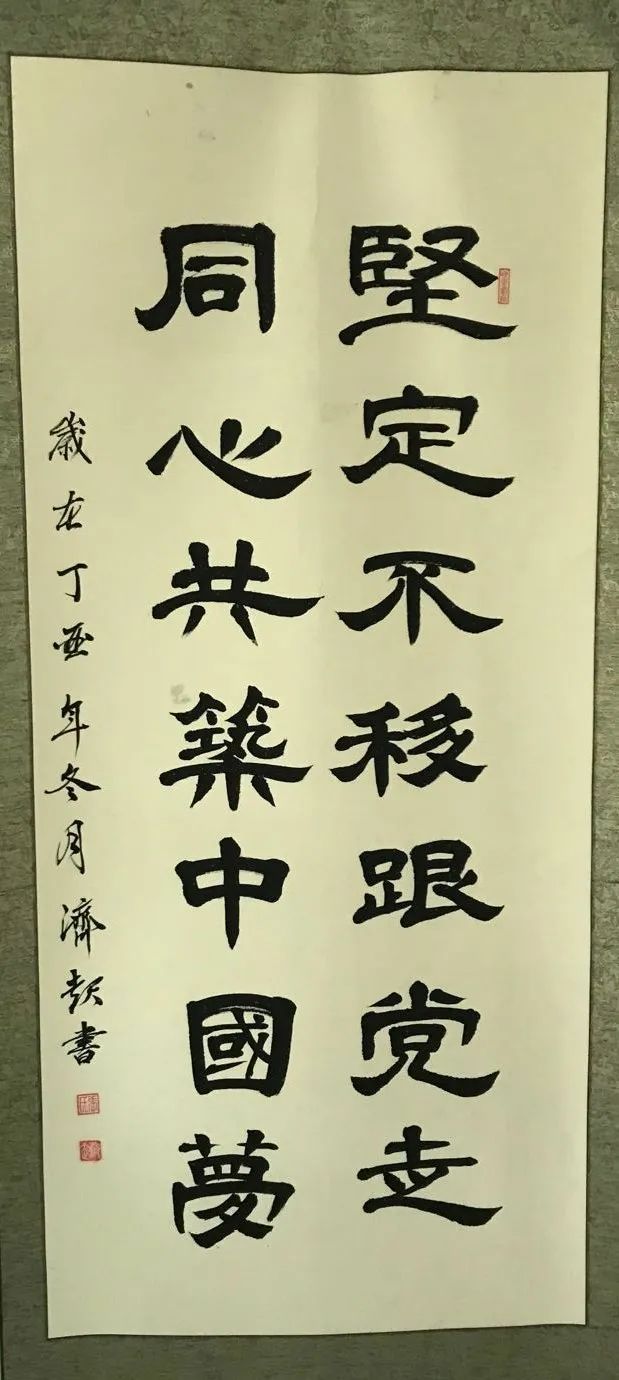 堅定不移跟党走
同心共築中國夢
歲在丁酉年冬月濟書